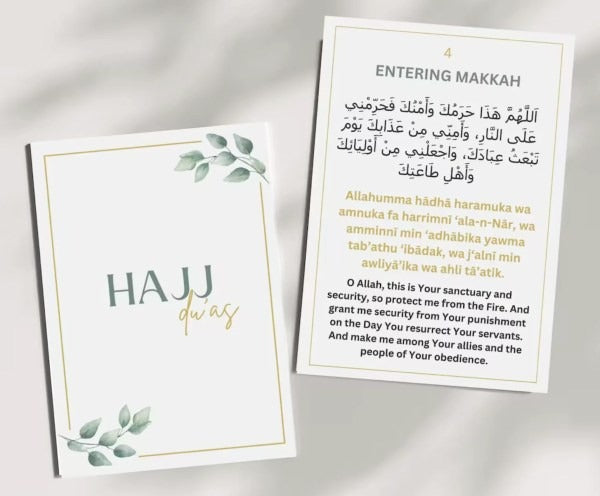 HAJJ
du'as
4
ENTERING MAKKAH
اَللَّهُمَّ هَذَا حَرَمُكَ وَأَمْنُكَ فَحَرِّمْنِي
عَلَى النَّارِ، وَأَمِنِّي مِنْ عَذَابِكَ يَوْمَ
تَبْعَثُ عِبَادَكَ، وَاجْعَلْنِي مِنْ أَوْلِيَائِكَ
وَأَهْلِ طَاعَتِكَ
Allahumma hādhā haramuka wa
amnuka fa harrimnī ‘ala-n-Nār, wa
amminnī min ‘adhābika yawma
tab’athu ‘ibādak, wa j‘alnī min
awliyā’ika wa ahli tā’atik.
O Allah, this is Your sanctuary and
security, so protect me from the Fire. And
grant me security from Your punishment
on the Day You resurrect Your servants.
And make me among Your allies and the
people of Your obedience.